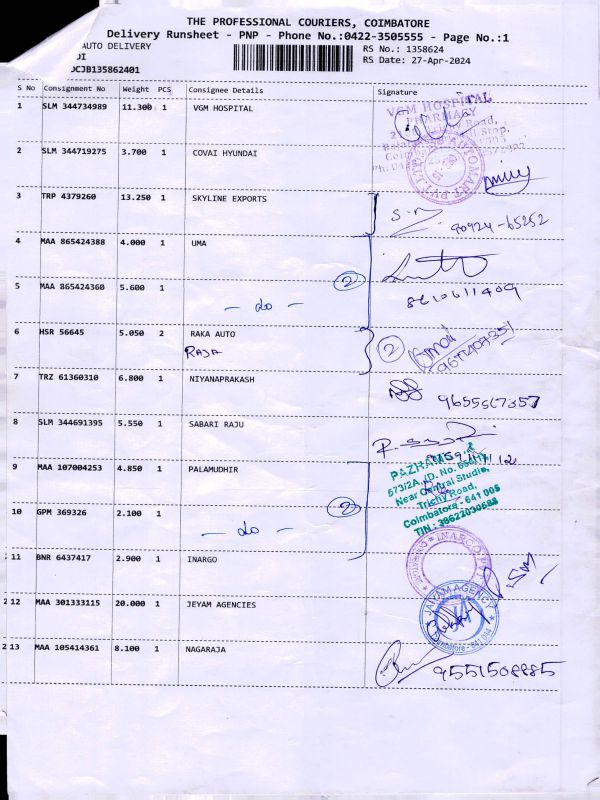 THE PROFESSIONAL COURIERS, COIMBATORE
Delivery Runsheet - PNP - Phone No.:0422-3505555 - Page No.:1
AUTO DELIVERY
RS No: 1358624
RS Date: 27-Apr-2024
OCJB135862401
S No Consignment No Weight PCS Consignee Details Signature
1 SLM 344734989 11.300 1 VGM HOSPITAL
VGM HOSPITAL
PHARMACY
2 SLM 344719275 3.700 1 COVAI HYUNDAI
3 TRP 4379260 13.250 1 SKYLINE EXPORTS
90924-65252
4 MAA 865424388 4.000 1 UMA
2
5 MAA 865424360 5.600 1
- do -
8610611409
6 HSR 56645 5.050 2 RAKA AUTO
RAJA
2
7 TRZ 61360310 6.800 1 NIYANAPRAKASH
9655567357
8 SLM 344691395 5.550 1 SABARI RAJU
9 MAA 107004253 4.850 1 PALAMUDHIR
573/2A, D. No.
Near Central Studio,
Trichy Road,
Coimbatore - 641 005
TIN : 33622030688
10 GPM 369326 2.100 1
2
- do -
11 BNR 6437417 2.900 1 INARGO
2 12 MAA 301333115 20.000 1 JEYAM AGENCIES
JAIYAM AGENCY
Coimbatore - 641 044
2 13 MAA 105414361 8.100 1 NAGARAJA
9551508885